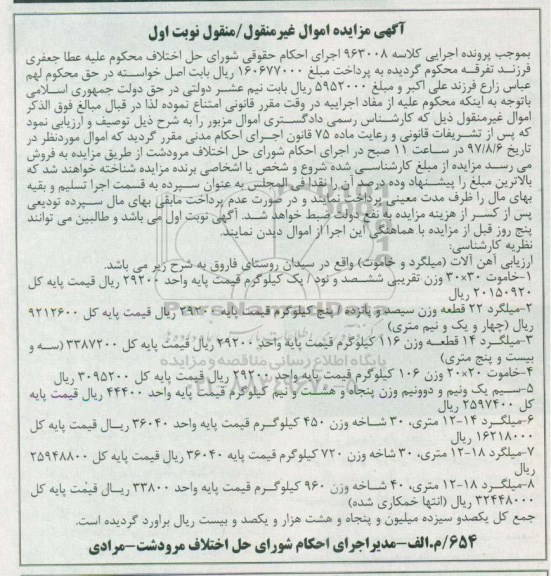 آگهی مزایده اموال غیرمنقول/منقول نوبت اول
بموجب پرونده اجرایی کلاسه ۹۶۳۰۰۸ اجرای احکام حقوقی شورای حل اختلاف محکوم علیه عطا جعفری
فرزند تفرقه محکوم گردیده به پرداخت مبلغ ۱۶۰۶۷۷۰۰۰ ریال بابت اصل خواسته در حق محکوم لهم
عباس زارع فرزند علی اکبر و مبلغ ۵۹۵۲۰۰۰ ریال بابت نیم عشر دولتی در حق دولت جمهوری اسلامی
باتوجه به اینکه محکوم علیه از مفاد اجراییه در وقت مقرر قانونی امتناع نموده لذا در قبال مبالغ فوق الذکر
اموال غیرمنقول ذیل که کارشناس رسمی دادگستری اموال مزبور را به شرح ذیل توصیف و ارزیابی نمود
که پس از تشریفات قانونی و رعایت ماده ۷۵ قانون اجرای احکام مدنی مقرر گردید که اموال موردنظر در
تاریخ ۹۷/۸/۶ در ساعت ۱۱ صبح در اجرای احکام شورای حل اختلاف مرودشت از طریق مزایده به فروش
می رسد مزایده از مبلغ کارشناسی شده شروع و شخص یا اشخاصی برنده مزایده شناخته خواهند شد که
بالاترین مبلغ را پیشنهاد وده درصد آن را نقدا فی المجلس به عنوان سپرده به قسمت اجرا تسلیم و بقیه
بهای مال را ظرف مدت معینی پرداخت نمایند و در صورت عدم پرداخت مابقی بهای مال سپرده تودیعی
پس از کسر از هزینه مزایده به نفع دولت ضبط خواهد شد. آگهی نوبت اول می باشد و طالبین می توانند
پنج روز قبل از مزایده با هماهنگی این اجرا از اموال دیدن نمایند.
نظریه کارشناسی:
ارزیابی آهن آلات (میلگرد و خاموت) واقع در سیدان روستای فاروق به شرح زیر می باشد.
۱-خاموت ۳۰×۳۰ وزن تقریبی ششصد و نود / یک کیلوگرم قیمت پایه واحد ۲۹۲۰۰ ریال قیمت پایه کل
۲۰۱۵۰۹۲۰ ریال
۲-میلگرد ۲۲ قطعه وزن سیصد و پانزده / پنج کیلوگرم قیمت پایه ۲۹۲۰۰ ریال قیمت پایه کل ۹۲۱۲۶۰۰
ریال (چهار و یک و نیم متری)
۳-میلگرد ۱۴ قطعه وزن ۱۱۶ کیلوگرم قیمت پایه واحد ۲۹۲۰۰ ریال قیمت پایه کل ۳۳۸۷۲۰۰ (سه و
بیست و پنج متری)
۴-خاموت ۲۰×۲۰ وزن ۱۰۶ کیلوگرم قیمت پایه واحد ۲۹۲۰۰ ریال قیمت پایه کل ۳۰۹۵۲۰۰ ریال
۵-سیم یک ونیم و دوونیم وزن پنجاه و هشت و نیم کیلوگرم قیمت پایه واحد ۴۴۴۰۰ ریال قیمت پایه
کل ۲۵۹۷۴۰۰ ریال
۶-میلگرد ۱۴-۱۲ متری، ۳۰ شاخه وزن ۴۵۰ کیلوگرم قیمت پایه واحد ۳۶۰۴۰ ریال قیمت پایه کل
۱۶۲۱۸۰۰۰ ریال
۷-میلگرد ۱۸-۱۲ متری، ۳۰ شاخه وزن ۷۲۰ کیلوگرم قیمت پایه ۳۶۰۴۰ ریال قیمت پایه کل ۲۵۹۴۸۸۰۰
ریال
۸-میلگرد ۱۸-۱۲ متری، ۴۰ شاخه وزن ۹۶۰ کیلوگرم قیمت پایه واحد ۳۳۸۰۰ ریال قیمت پایه کل
۳۲۴۴۸۰۰۰ ریال (انتها خمکاری شده)
جمع کل یکصدو سیزده میلیون و پنجاه و هشت هزار و یکصد و بیست ریال براورد گردیده است.
۶۵۴/م.الف-مدیراجرای احکام شورای حل اختلاف مرودشت-مرادی
پایگاه اطلاع رسانی مناقصه و مزایده